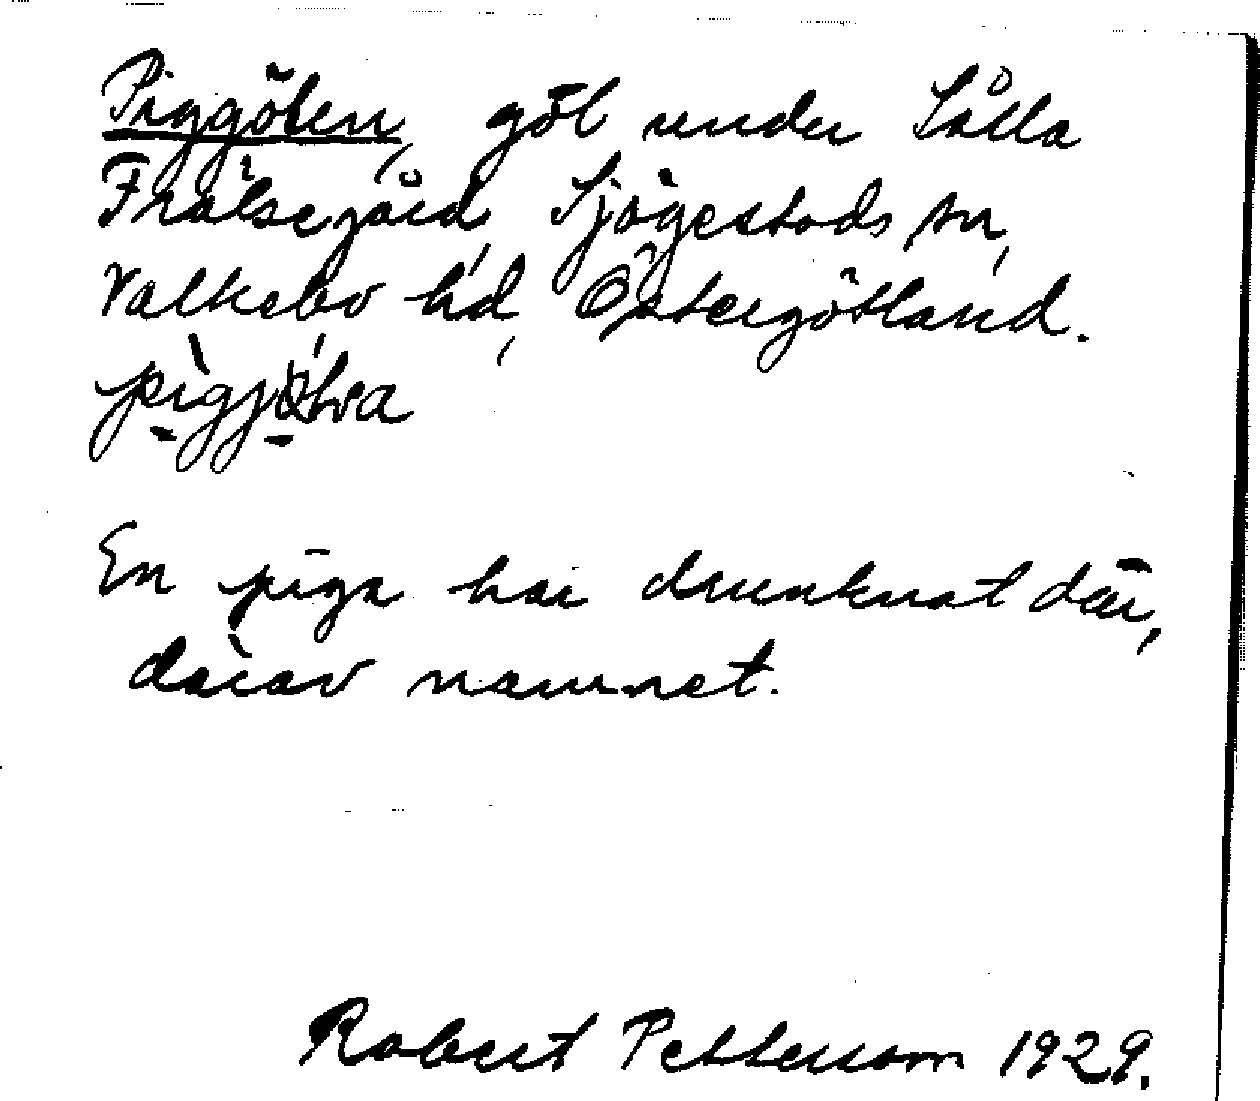 Piggölen, göl under Sålla
Frälsegård, Sjögestads sn,
Valkebo hd, Östergötland.
En piga har drunknat där,
därav namnet.
Robert Pettersson 1929.